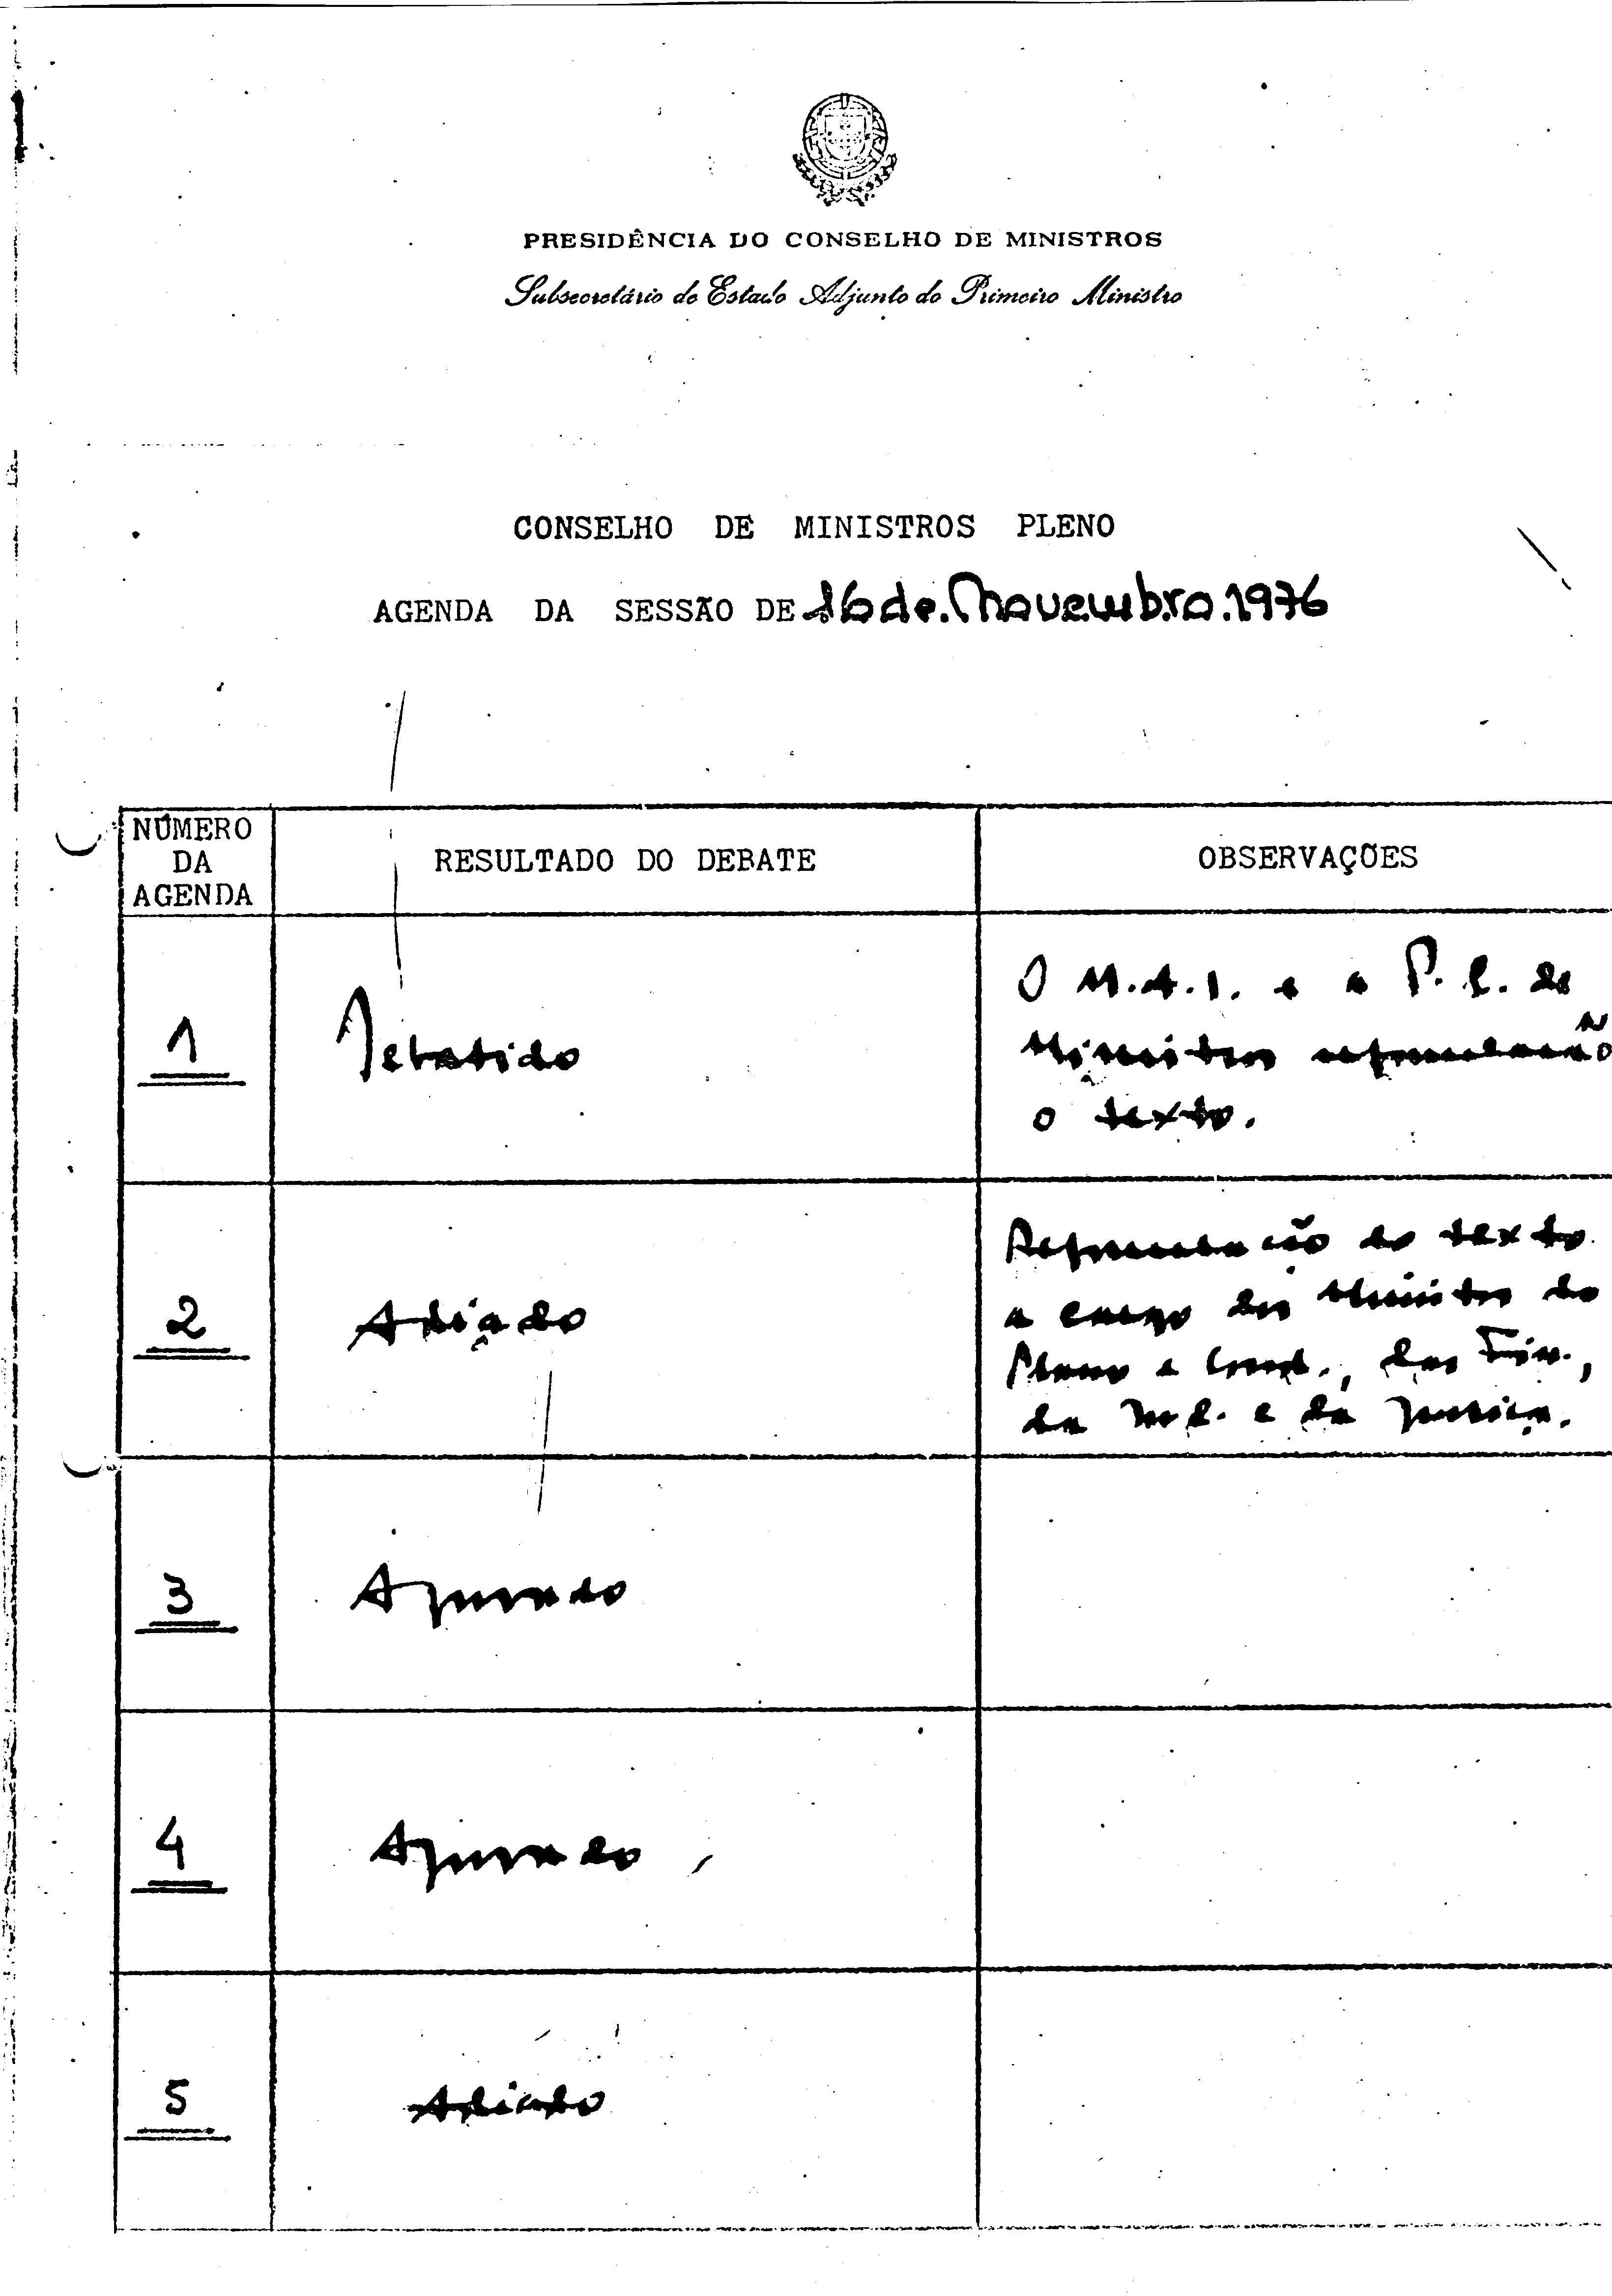 PRESIDÊNCIA DO CONSELHO DE MINISTROS
Subsecretário de Estado Adjunto do Primeiro Ministro
CONSELHO DE MINISTROS PLENO
AGENDA DA SESSÃO DE 16 de Novembro.1976
NÚMERO
DA
AGENDA
RESULTADO DO DEBATE
OBSERVAÇÕES
1
Debatido
O M.A.I. e a P.C. de
Ministros reformularão
o texto.
2
Adiado
Reformulação do texto
a cargo dos Ministros do
Plano e Coord., das Fin.,
da e da Justiça.
3
Aprovado
4
Aprovado
5
Adiado